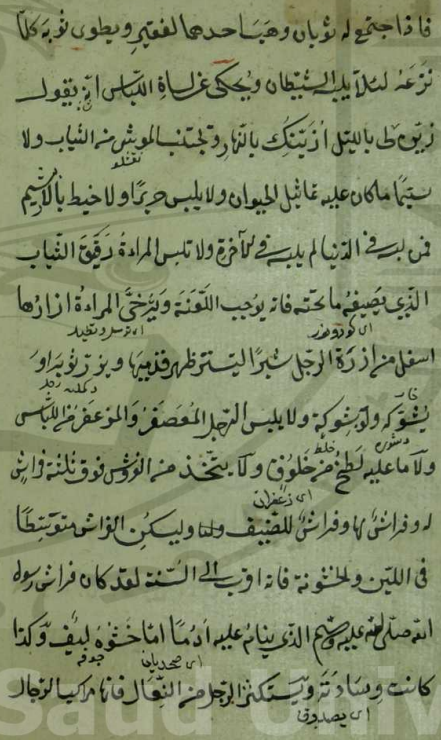 فاذا اجتمع له ثوبان وهب احدهما لفقير ويطوى ثوبه كلّما
نزعه لئلا يلبسه الشيطان ويحكى عن لسان اللباس انه يقول
زيّنّى بالليل ازيّنك بالنهار ويجتنب الموشى من الثياب ولا
سيّما ما كان عليه تماثيل الحيوان ولا يلبس حريرا ولا خيط بالابريسم
فمن لبسه فى الدنيا لم يلبسه فى الآخرة ولا تلبس المراة رقيق الثياب
الذى يصفه ما تحته فانه يوجب اللعنة وترخى المراة ازارها
اسفل من ازرة الرجل شبرا ليستتر ظهر قدميها ويزرّ ثوبه او
يشوّكه ولو بشوكة ولا يلبس الرجل المعصفر والمزعفر من اللباس
ولا ما عليه لطخ من خلوق ولا يتخذ من الفرش فوق ثلثة فراش
له وفراش لها وفراش للضيف وليكن الفراش متوسطا
فى اللين والخشونة فانه اقرب الى السنة لقد كان فراش رسول
الله صلى الله عليه وسلم الذى ينام عليه ادما حشوه ليف وكذا
كانت وسادته ويستكثر الرجل من النعال فانها مراكب الرجال
Saud Univ